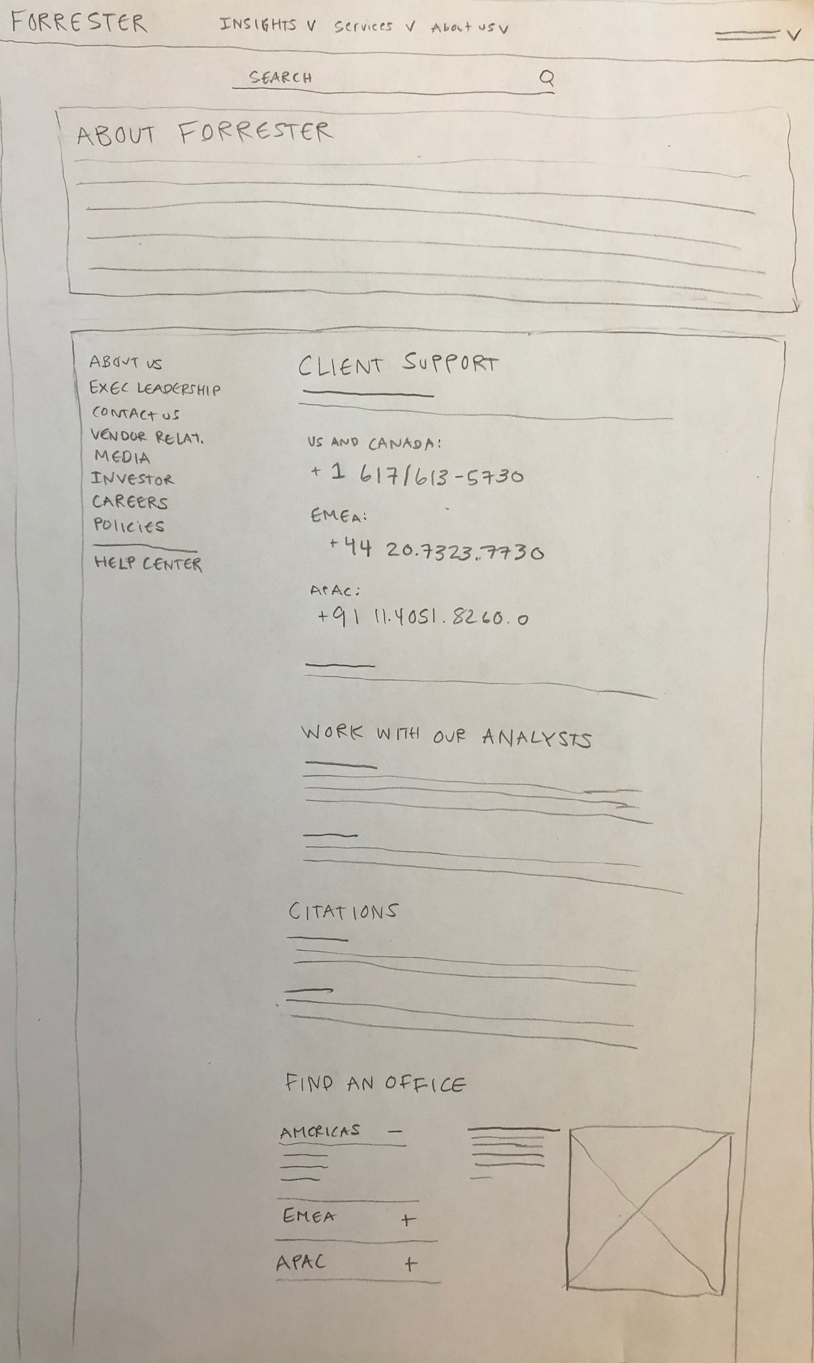 FORRESTER INSIGHTS V Services V About us V V
SEARCH
ABOUT FORRESTER
ABOUT US
EXEC LEADERSHIP
CONTACT US
VENDOR RELAT.
MEDIA
INVESTOR
CAREERS
POLICIES
HELP CENTER
CLIENT SUPPORT
US AND CANADA:
+1 617/613-5730
EMEA:
+44 20.7323.7730
APAC:
+91 11.4051.8260.0
WORK WITH OUR ANALYSTS
CITATIONS
FIND AN OFFICE
AMERICAS —
EMEA +
APAC +